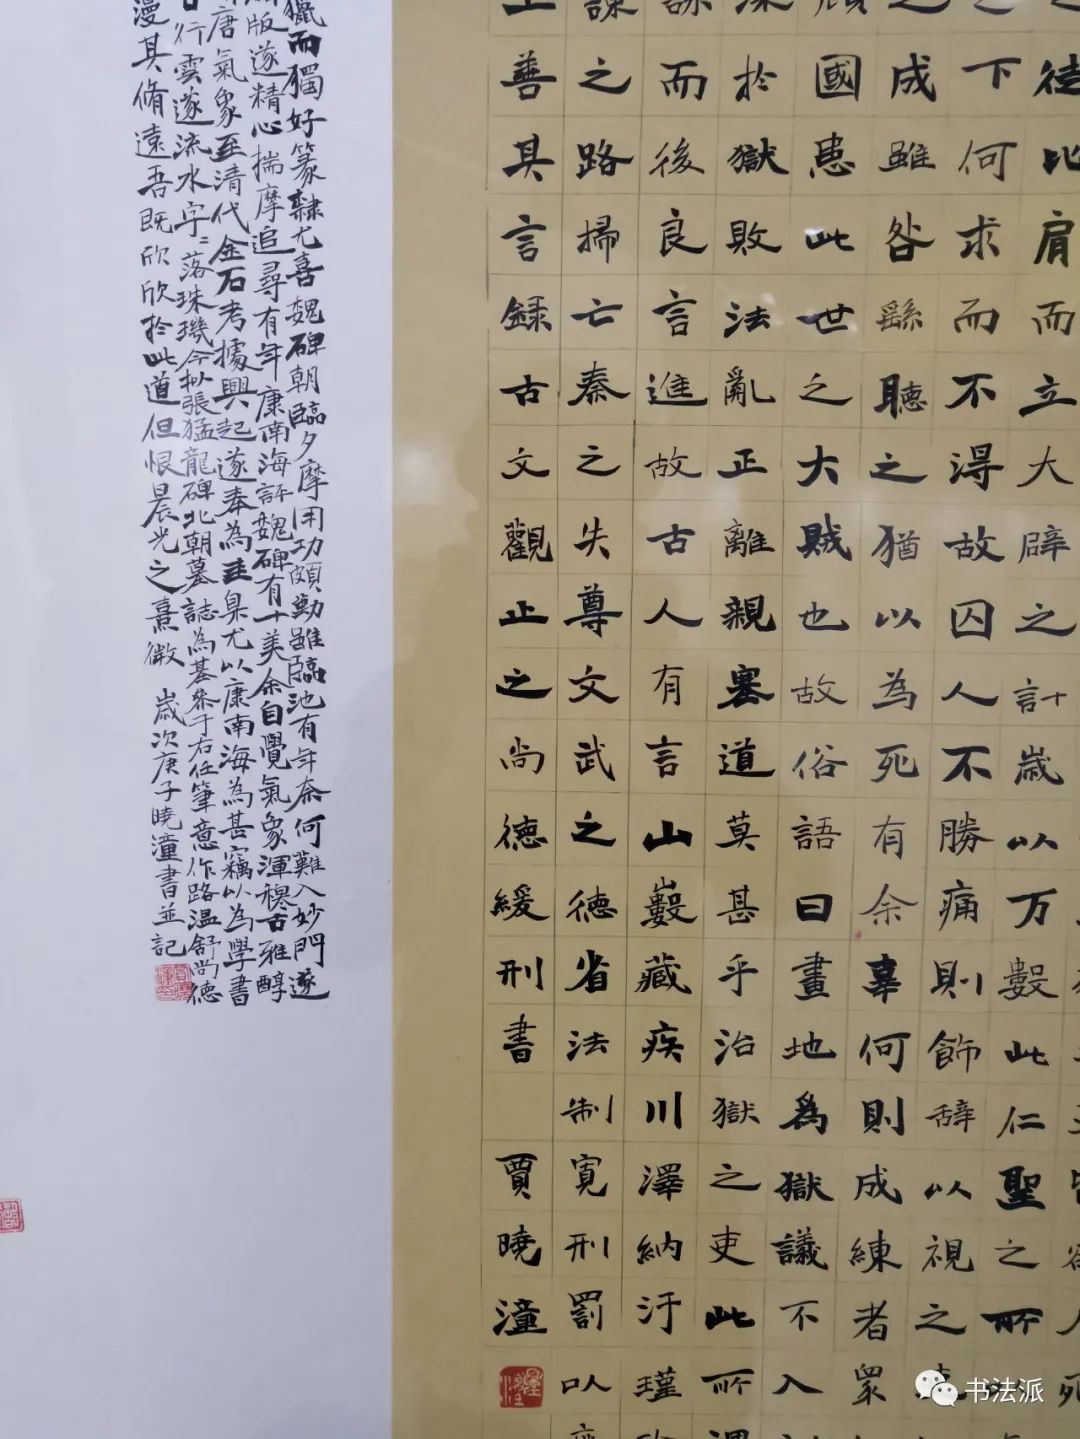 徒比肩而立大辟之計歲以万數此仁聖之所
之下何求而不得故囚人不勝痛則飾辞以視之
成雖咎繇聽之猶以為死有余辜何則成練者衆
國患此世之大賊也故俗語曰畫地為獄議不入
深於獄敗法亂正離親塞道莫甚乎治獄之吏此所謂
誅而後良言進故古人有言山藪藏疾川澤納汙瑾
謀之路掃亡秦之失尊文武之德省法制寬刑罰以
上善其言録古文觀止之尚德緩刑書 賈曉潼
獵而獨好篆隸尤喜魏碑朝臨夕摩用功頗勤雖臨池有年奈何難入妙門遂
版遂精心揣摩追尋有年康南海評魏碑有十美余自覺氣象渾穆古雅醇
唐氣象至清代金石考據興起遂奉為圭臬尤以康南海為甚竊以為學書
行雲遂流水字〻落珠璣今擬張猛龍碑北朝墓誌為基參于右任筆意作路温舒尚德
漫其脩遠吾既欣欣於此道但恨晨光之熹微 歲次庚子曉潼書並記
书法派